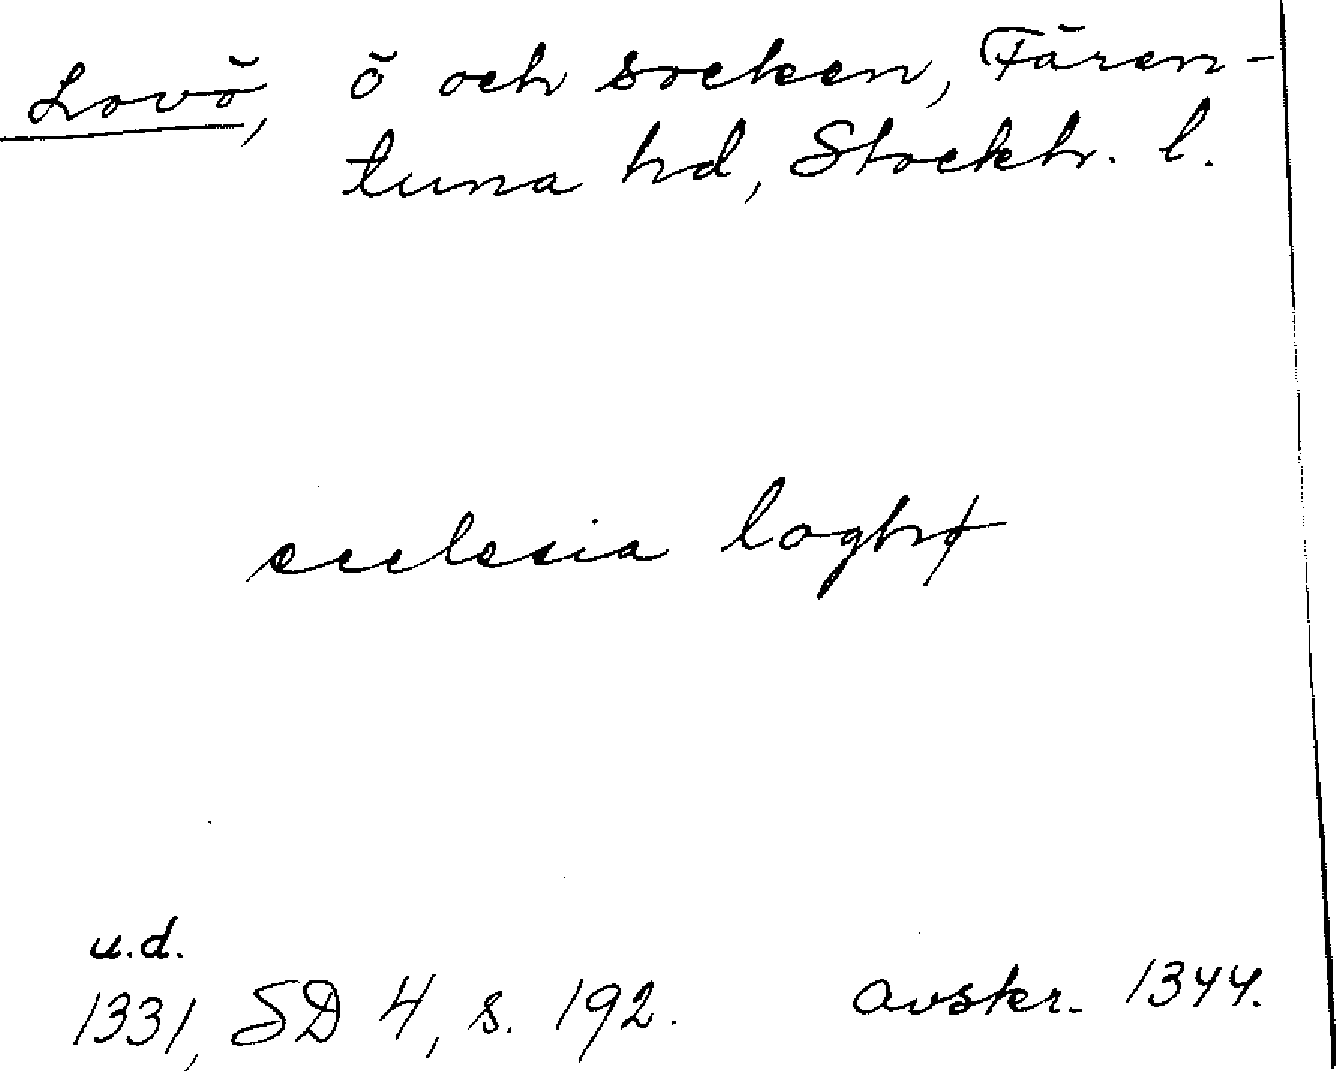 Lovö, ö och socken, Fären-
tuna hd, Stockh. l.
ecclesia loghø
u.d.
1331, SD 4, s. 192. avskr. 1344.